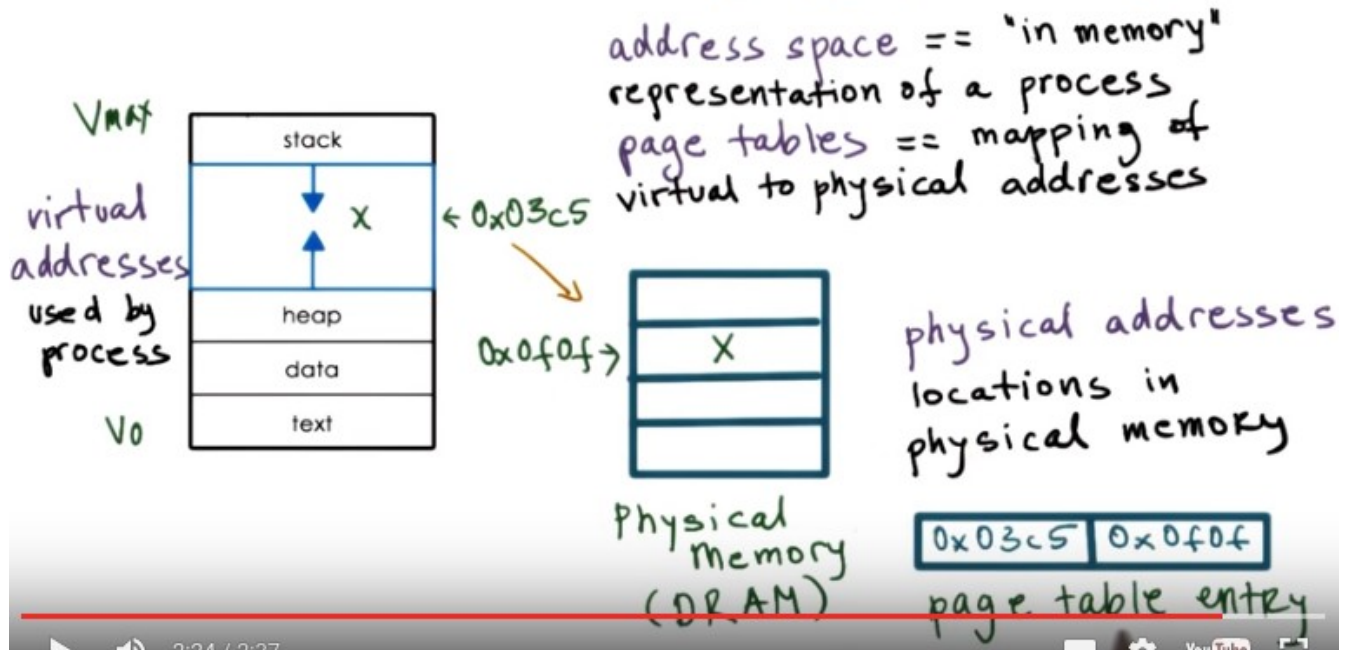 address space == "in memory"
representation of a process
page tables == mapping of
virtual to physical addresses
Vmax
stack
virtual
addresses
used by
process
X
← 0x03c5
heap
data
text
V0
0x0f0f →
X
Physical
memory
(DRAM)
physical addresses
locations in
physical memory
0x03c5 0x0f0f
page table entry
YouTube